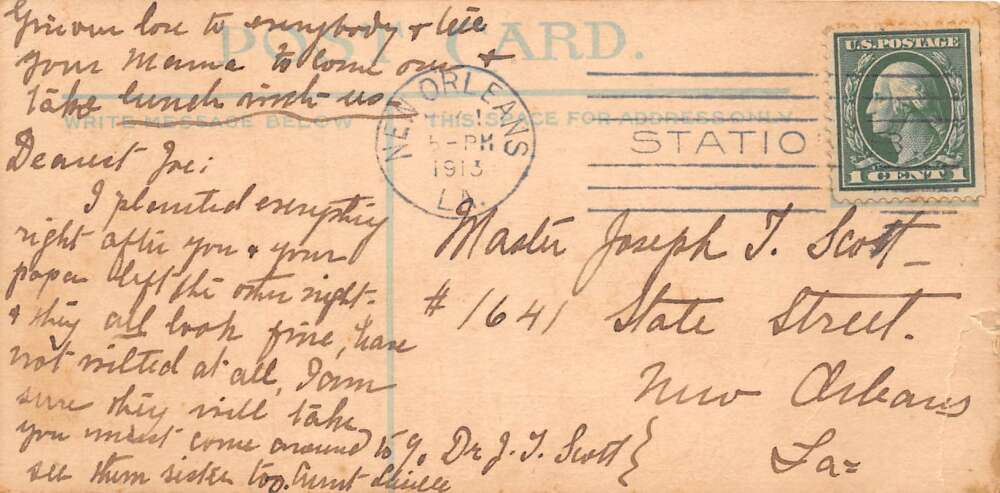 Give our love to everybody & tell
your Mama to come over &
take lunch with us
POST CARD.
WRITE MESSAGE BELOW
THIS SPACE FOR ADDRESS ONLY
NEW ORLEANS
5-PM
1913
LA.
STATIO
U.S. POSTAGE
1 CENT 1
Dearest Joe:
I planted everything
right after you & your
papa left the other night.
& they all look fine, have
not wilted at all, I am
sure they will take
you must come around to
see them sister too. Aunt
Master Joseph T. Scott
# 1641 State Street.
New Orleans
La=
Dr J. T. Scott }